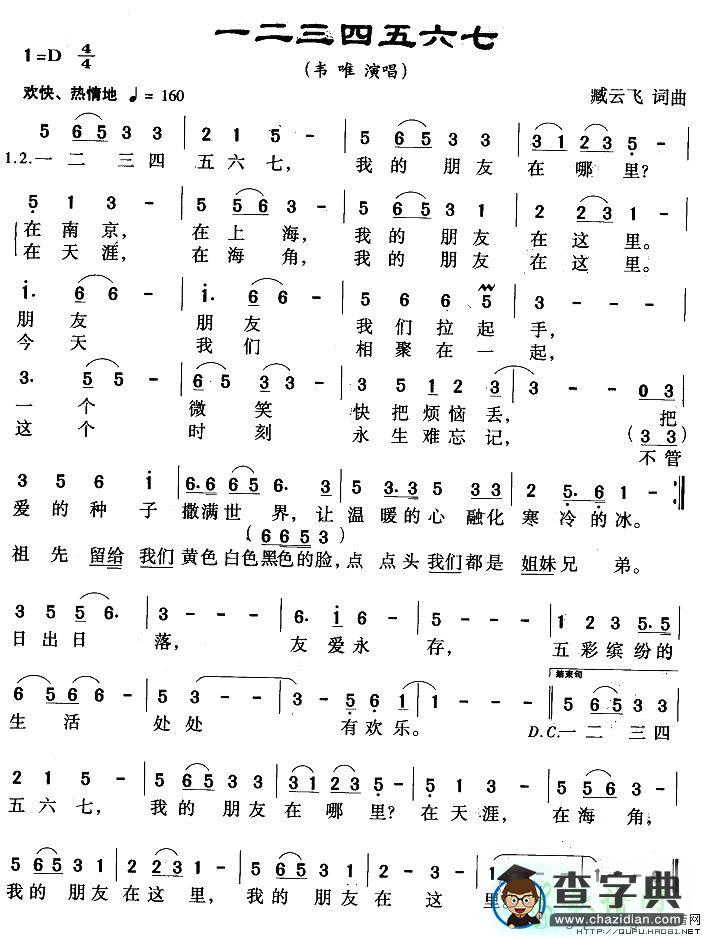 一二三四五六七
1=D 4/4
(韦 唯 演唱)
欢快、热情地 ♩= 160
臧云飞 词曲
5 6 5 3 3 | 2 1 5 - | 5 6 5 3 3 | 3 1 2 3 5 - |
1.2.一 二 三 四 五 六 七, 我 的 朋 友 在 哪 里?
5 1 3 - | 5 5 6 3 - | 5 6 5 3 1 | 2 2 3 1 - |
在 南 京, 在 上 海, 我 的 朋 友 在 这 里。
在 天 涯, 在 海 角, 我 的 朋 友 在 这 里。
1. 6 6 - | 1. 6 6 - | 5 6 6 5 | 3 - - - |
朋 友 朋 友 我 们 拉 起 手,
今 天 我 们 相 聚 在 一 起,
3. 5 5 - | 6 5 3 3 - | 3 5 1 2 3 | 3 - - 0 3 |
一 个 微 笑 快 把 烦 恼 丢, 把
这 个 时 刻 永 生 难 忘 记, (3 3)
不 管
3 5 6 1 | 6. 6 6 6 6. 3 | 5 3. 3 5 3 3 | 2 5. 6 1 - :‖
爱 的 种 子 撒满 世 界, 让 温 暖 的 心 融化 寒 冷 的 冰。
(6 6 5 3)
祖 先 留给 我们 黄色 白色 黑色 的 脸, 点 点 头 我们 都是 姐妹 兄 弟。
3 5 5 6. | 3 - - - | 6. 1 6 5 | 5 - - - | 1 2 3 5. 5 |
日 出 日 落, 友 爱 永 存, 五 彩 缤 纷 的
结束句
6 5 6 6 - | 5 3 - - | 3 - 5 6 1 | 1 - - - ‖ 5 6 5 3 3 |
生 活 处 处 有 欢 乐。 D.C. 一 二 三 四
2 1 5 - | 5 6 5 3 3 | 3 1 2 3 5 - | 5 1 3 - | 5 5 6 3 - |
五 六 七, 我 的 朋 友 在 哪 里? 在 天 涯, 在 海 角,
5 6 5 3 1 | 2 2 3 1 - | 5 6 5 3 1 | 2 - - 3 | 1 - - -
我 的 朋 友 在 这 里, 我 的 朋 友 在 这 里
查字典
www.chazidian.com
http://QUPU.HAO81.NET